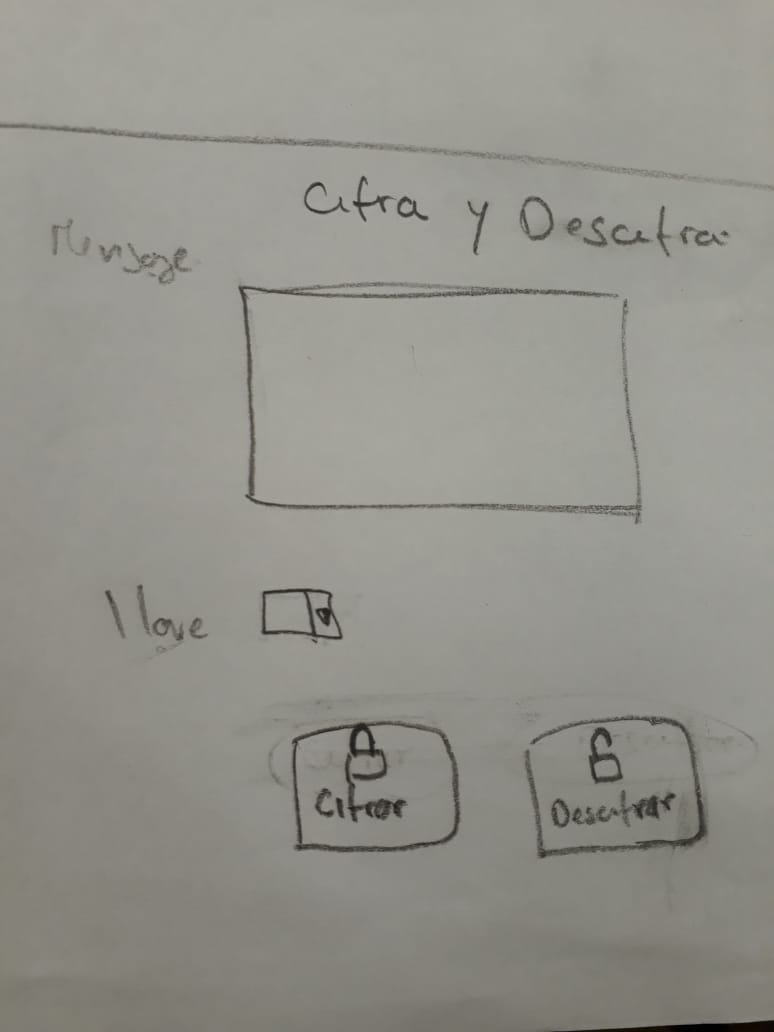 Cifra y Descifrar
Mensaje
llave
Cifrar
Descifrar